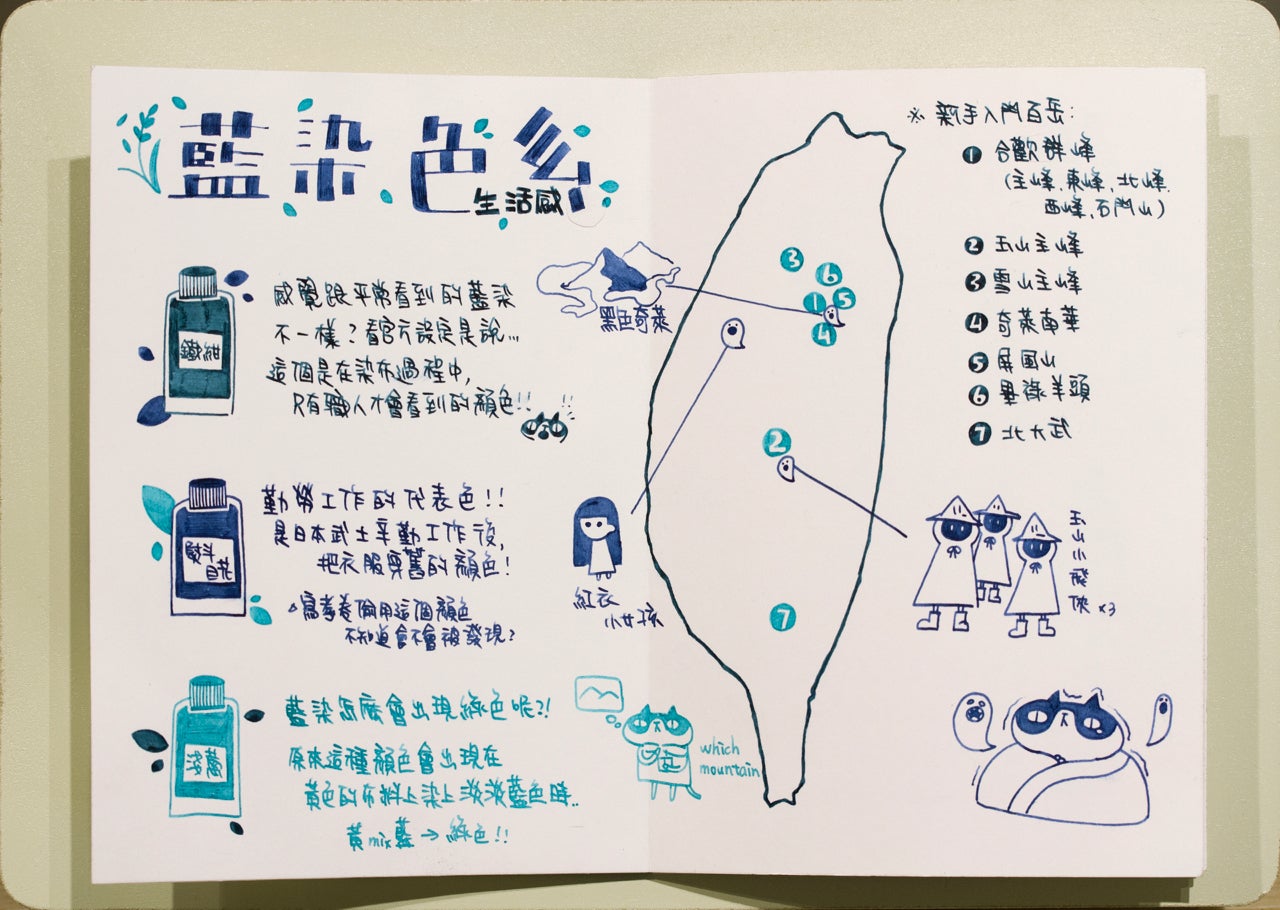 藍染色彩
生活感
鐵紺
感覺跟平常看到的藍染
不一樣？看官方設定是說...
這個是在染布過程中,
只有職人才會看到的顏色!!
熨斗目花
勤勞工作的代表色!!
是日本武士辛勤工作後,
把衣服穿舊的顏色!
寫考卷偷用這個顏色
不知道會不會被發現?
淺蔥
藍染怎麼會出現綠色呢?!
原來這種顏色會出現在
黃色的布料上染上淡淡藍色時..
黃mix藍→綠色!!
黑色奇萊
紅衣
小女孩
which
mountain
3
6
1
5
4
2
7
※ 新手入門百岳:
1 合歡群峰
(主峰、東峰、北峰、
西峰、石門山)
2 玉山主峰
3 雪山主峰
4 奇萊南華
5 屏風山
6 畢祿羊頭
7 北大武
玉山小飛俠 x3
!!